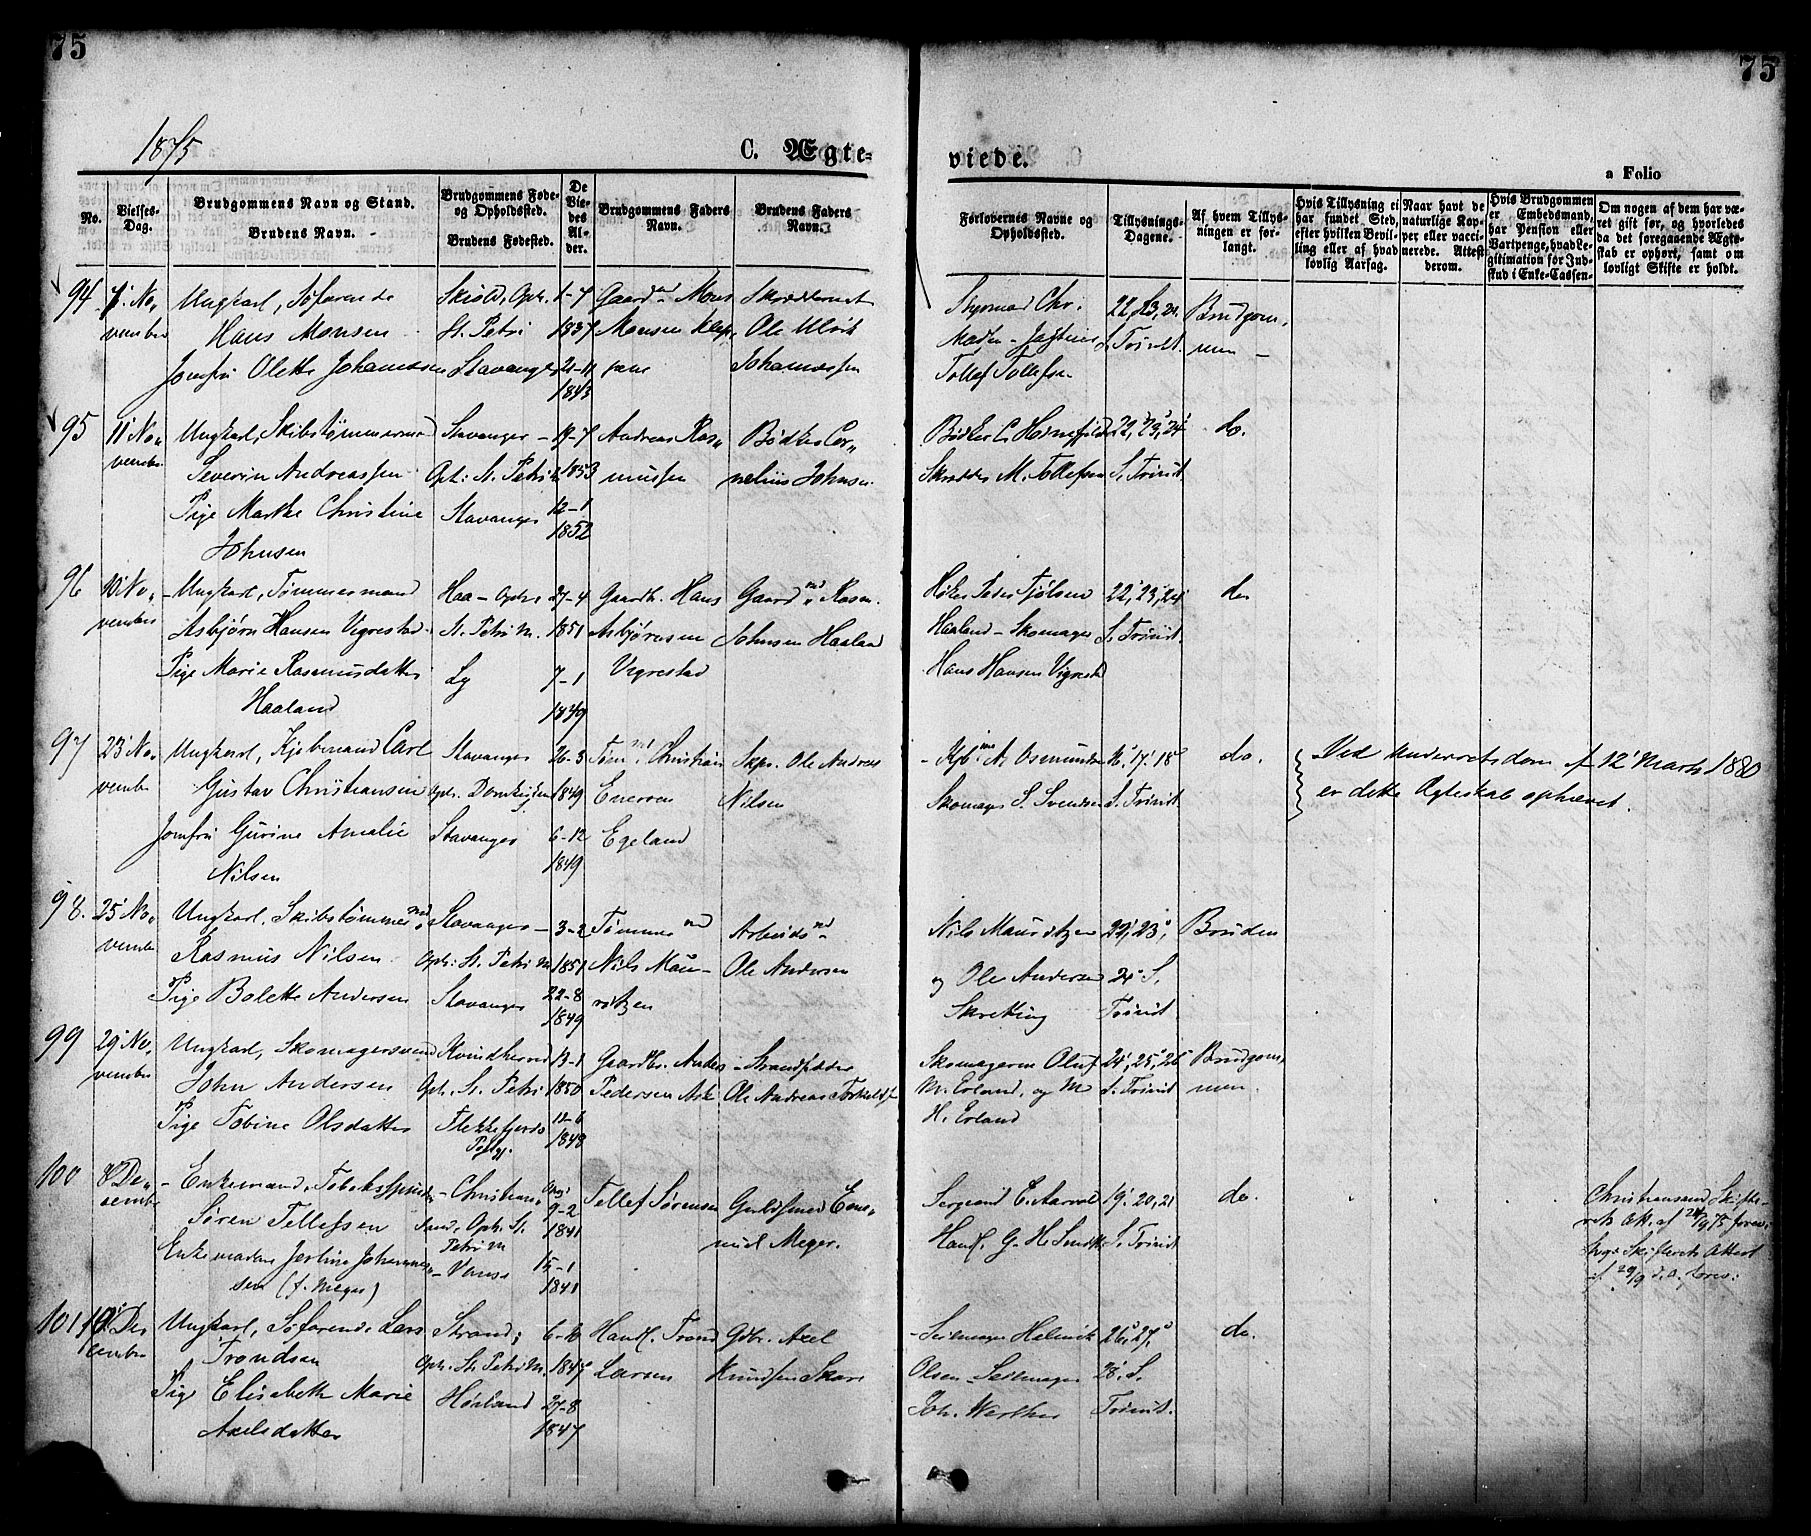 75
75
1875
C. Ægte-
viede.
a Folio
No.
Vielses-
Dag.
Brudgommens Navn og Stand.
Brudens Navn.
Brudgommens Føde-
og Opholdssted.
Brudens Fødested.
De
Vie-
des
Al-
der.
Brudgommens Faders
Navn.
Brudens Faders
Navn.
Forlovernes Navne og
Opholdssted.
Tillysnings-
Dagene.
Af hvem Tillys-
ningen er for-
langt.
Hvis Tillysning ei
har fundet Sted,
efter hvilken Bevil-
ling eller af hvad
lovlig Aarsag.
Naar havt de
naturlige Kop-
per eller vacci-
nerede. Attest
derom.
Hvis Brudgommen
er Embedsmand,
har Pension eller
Vartpenge, hvad Le-
gitimation for Ind-
skud i Enke-Cassen.
Om nogen af dem har væ-
ret gift før, og hvorledes
da det foregaaende Ægte-
skab er ophørt, samt om
lovligt Skifte er holdt.
94
No-
vember
Ungkarl, Søfarende
Hans Monsen
Jomfru Olette Johannessen
Skiold, Oph.
St. Petri
Stavanger
1837
21-11
1843
Gaardmd Mons
Monsen
Ole Ulrik
Johannessen
Chr.
Tollef Tollefsen
22, 23, 24
S. Trinit.
Brudgom-
men
95
11' No-
vember
Ungkarl, Skibstømmermd
Severin Andreassen
Pige Marthe Christine
Johnsen
Stavanger
Oph: St. Petri
Stavanger
19-7
1853
12-1
1852
Andreas Ras-
mussen
Bødker Cor-
nelius Johnsen
Bødker C. Hornefjeld
Skrædder M. Tollefsen
22, 23, 24
S. Trinit
do.
96
10' No-
vember
Ungkarl, Tømmermand
Asbjørn Hansen Vigrestad
Pige Marie Rasmusdatter
Haaland
Haa - Oph:
St. Petri M.
Ly
27-4
1851
7-1
1849
Gaardb. Hans
Asbjørnsen
Vigrestad
Gaardmd Rasm.
Johnsen Haaland
Høker Peder Tjølsen
Haaland - Skomager
Hans Hansen Vigrestad
22, 23, 24
S. Trinit.
do
97
23' No-
vember
Ungkarl, Kjøbmand Carl
Gustav Christiansen
Jomfru Gurine Amalie
Nilsen
Stavanger
Oph. Domkirken
Stavanger
26-3
1849
6-12
1849
Tømmd Christian
Enersen
Egeland
Skpr. Ole Andreas
Nilsen
Kjbmd A. Osmundsen
Skomager S. Svendsen
16, 17, 18
S. Trinit.
do.
Ved Underretsdom af 12' Marts 1880
er dette Ægteskab ophævet.
98.
25' No-
vember
Ungkarl, Skibstømmermd
Rasmus Nilsen
Pige Bolette Andersen
Stavanger
Oph: St. Petri M
Stavanger
3-2
1851
22-8
1849
Tømmermd
Nils Mau-
ritzen
Arbeidsmd
Ole Andersen
Nils Mauritzen
og Ole Andersen
Skretting
22, 23,
24 S.
Trinit.
Bruden
99
29' No-
vember
Ungkarl, Skomagersvend
John Andersen
Pige Tobine Olsdatter
Kvindherred
Oph. St. Petri
Flekkefjords
13-1
1850
12-6
1848
Gaardbr. Anders
Pedersen Ask
Strandsidder
Ole Andreas Torkelds
Skomagerne Oluf
M. Erland, og M
H. Erland
24, 25, 26
S. Trinit
Brudgom-
men.
100
8' De-
cember
Enkemand, Fabriksspinder
Søren Tellefsen
Enkemadam Jertine Johannes-
sen (f. Meyer)
Christian-
sand, Oph. St.
Petri M
Vanse
9-2
1841
15-1
1841
Tellef Sørensen
Guldsmed Ema-
nuel Meyer.
Sergeand E. Aarvold
Handl. G. H. Smith
19, 20, 21
S. Trinit
do.
Christiansand Skifte-
rets Att. af 24/9 75 forev.
Skifterets Attest
af 29/9 d. a. forev:
101
10' De-
cember
Ungkarl, Søfarende Lars
Trondsen
Pige Elisabeth Marie
Axelsdatter
Strand,
Oph. St. Petri M.
Høiland
1847
27-8
1847
Handl. Trond
Larsen
Gdbr. Axel
Knudsen Skare
Seilmager Halvik
Olsen - Seilmager
Joh. Werther
26, 27,
28, S.
Trinit.
do.